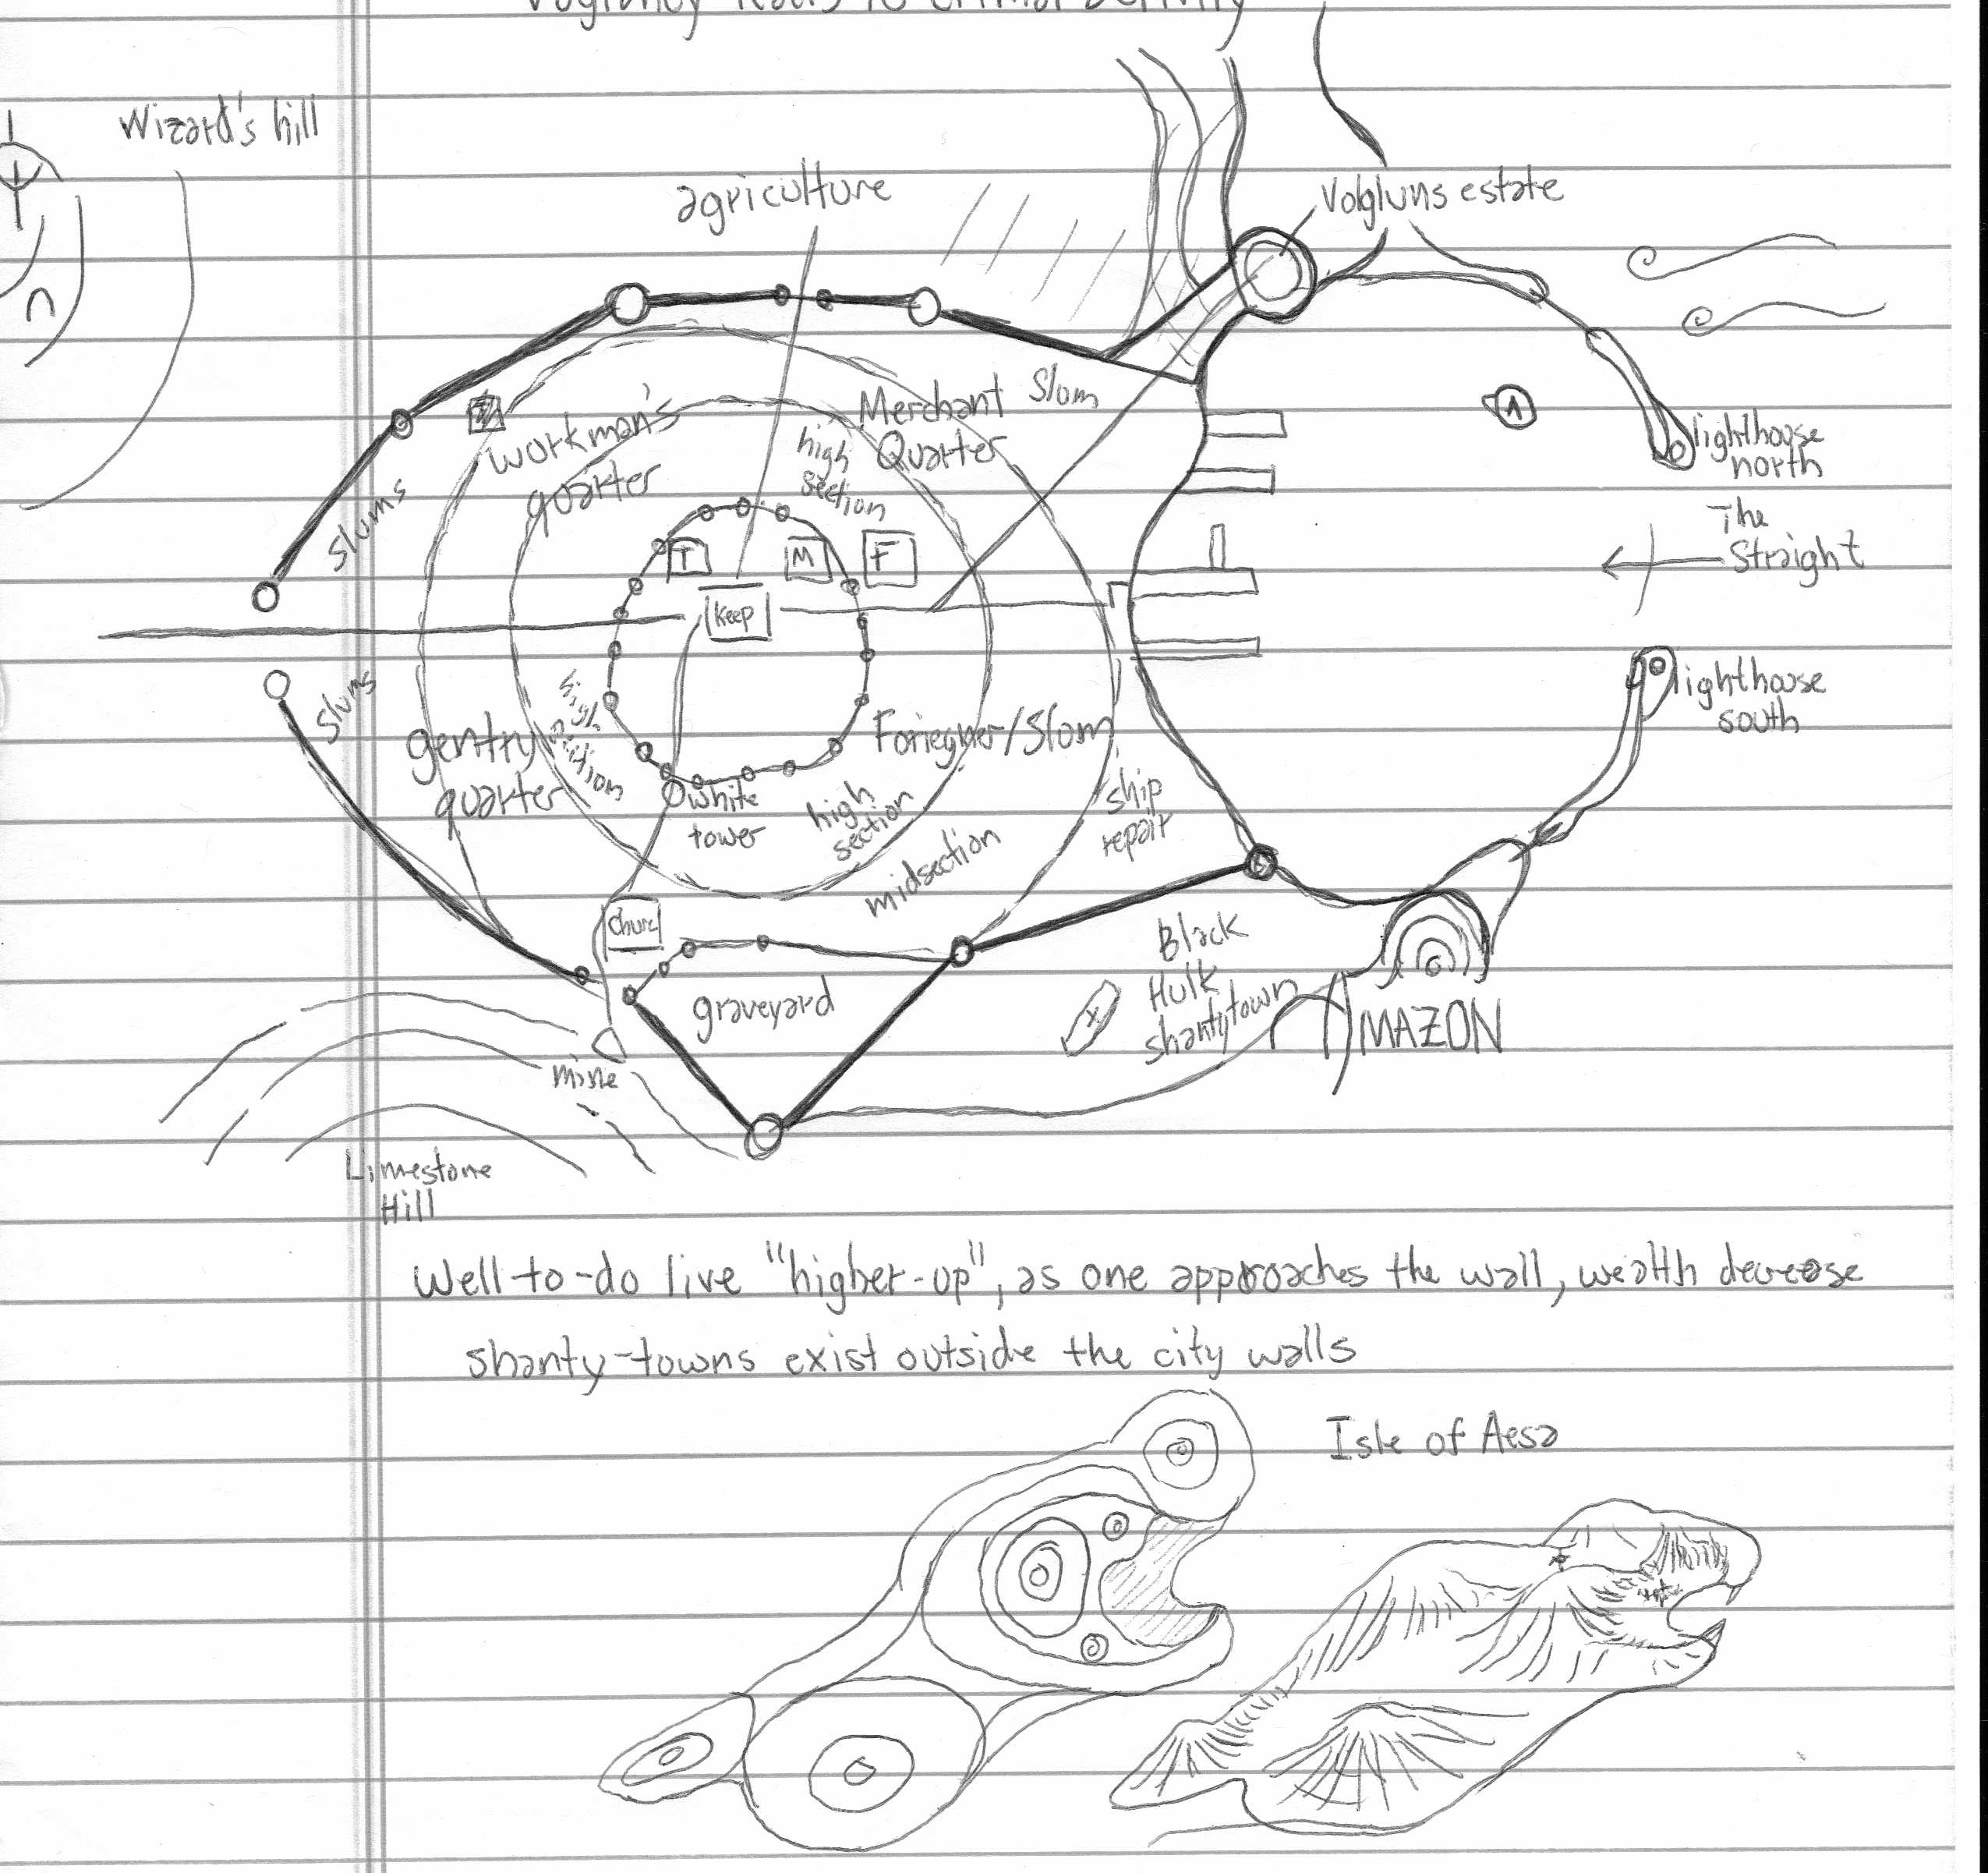 Wizard's hill
agriculture
Volgluns estate
Slum
Merchant
Quarter
workman's
quarter
high
section
lighthouse
north
slums
The
Straight
T
M
F
A
Keep
slums
gentry
quarter
high
section
Foriegner/Slum
lighthouse
south
white
tower
high
section
ship
repair
midsection
Church
Black
Hulk
shantytown
graveyard
AMAZON
mine
Limestone
Hill
Well-to-do live "higher-up", as one approaches the wall, wealth decrease
shanty-towns exist outside the city walls
Isle of Aesa